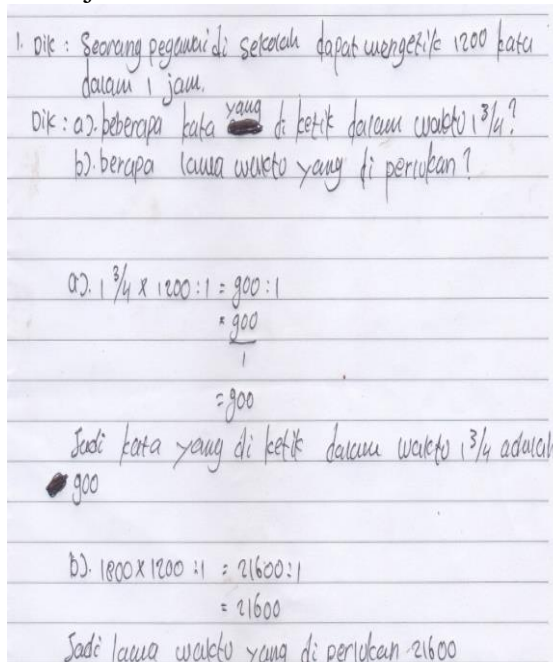 1. Dik : Seorang pegawai di sekolah dapat mengetik 1200 kata
dalam 1 jam.
Dik : a). beberapa kata yang di ketik dalam waktu 1 3/4?
b). berapa lama waktu yang di perlukan?
a). 1 3/4 x 1200 : 1 = 900 : 1
= 900
1
= 900
Jadi kata yang di ketik dalam waktu 1 3/4 adalah
900
b). 1800 x 1200 : 1 = 21600 : 1
= 21600
Jadi lama waktu yang di perlukan 21600